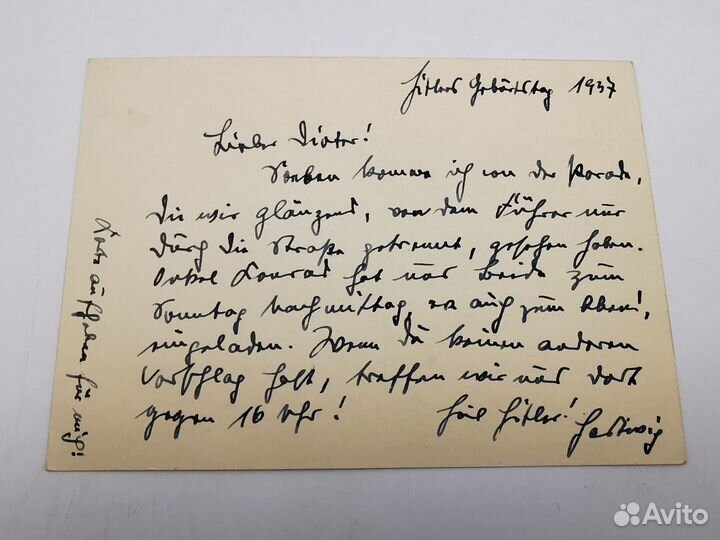 Hitlers Geburtstag 1937
Lieber Dieter!
Soeben komme ich von der Parade,
die wir glänzend, von dem Führer nur
durch die Straße getrennt, gesehen haben.
Onkel Konrad hat uns beide zum
Sonntag nachmittag, u. auch zum Abend,
eingeladen. Wenn du keinen anderen
Vorschlag hast, treffen wir uns dort
gegen 16 Uhr! Heil Hitler! Hartwig
Karte aufheben für mich!
Avito